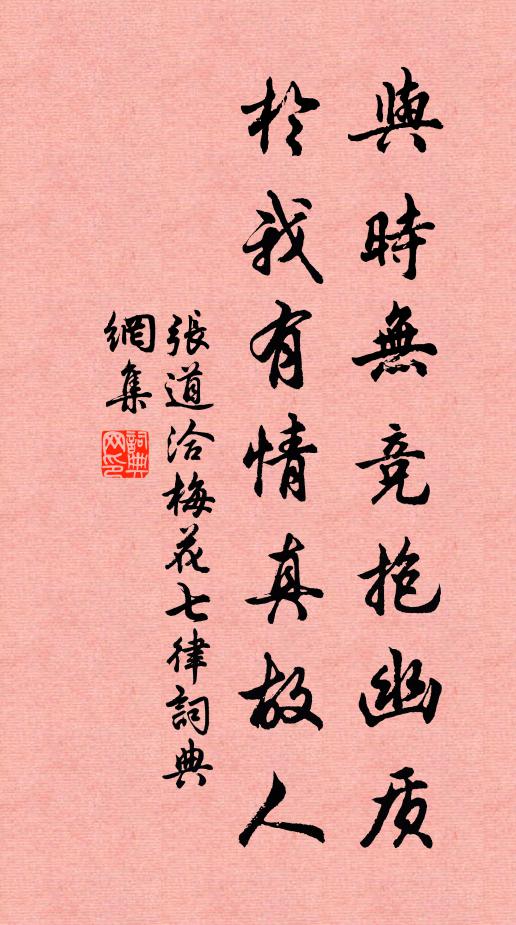 與時無竞抱幽质
於我有情真故人
張道洽梅花七律詞典
網集
詞典
网印